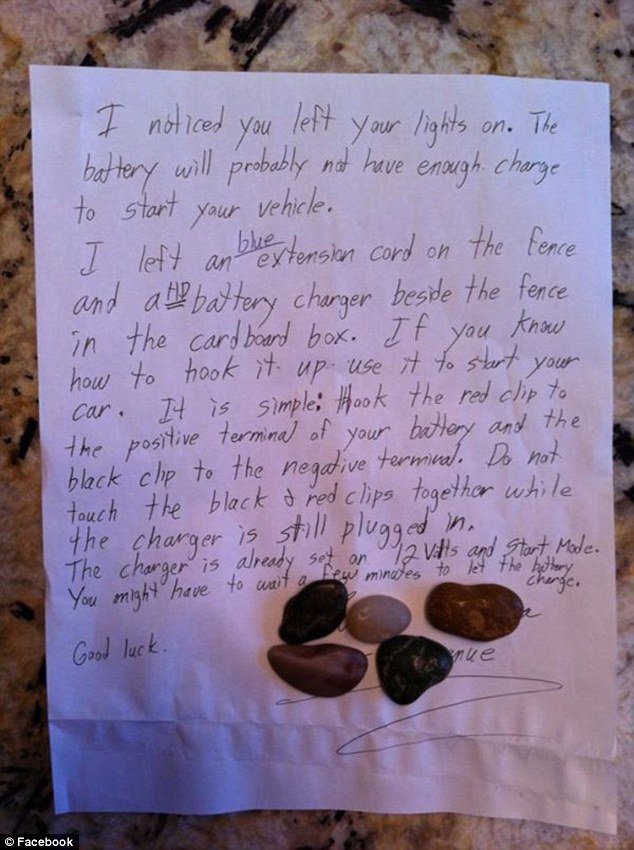 I noticed you left your lights on. The
battery will probably not have enough charge
to start your vehicle.
I left an blue extension cord on the fence
and a HD battery charger beside the fence
in the cardboard box. If you know
how to hook it up use it to start your
car. It is simple: Hook the red clip to
the positive terminal of your battery and the
black clip to the negative terminal. Do not
touch the black & red clips together while
the charger is still plugged in.
The charger is already set on 12 Volts and Start Mode.
You might have to wait a few minutes to let the battery
charge.
Good luck.
© Facebook